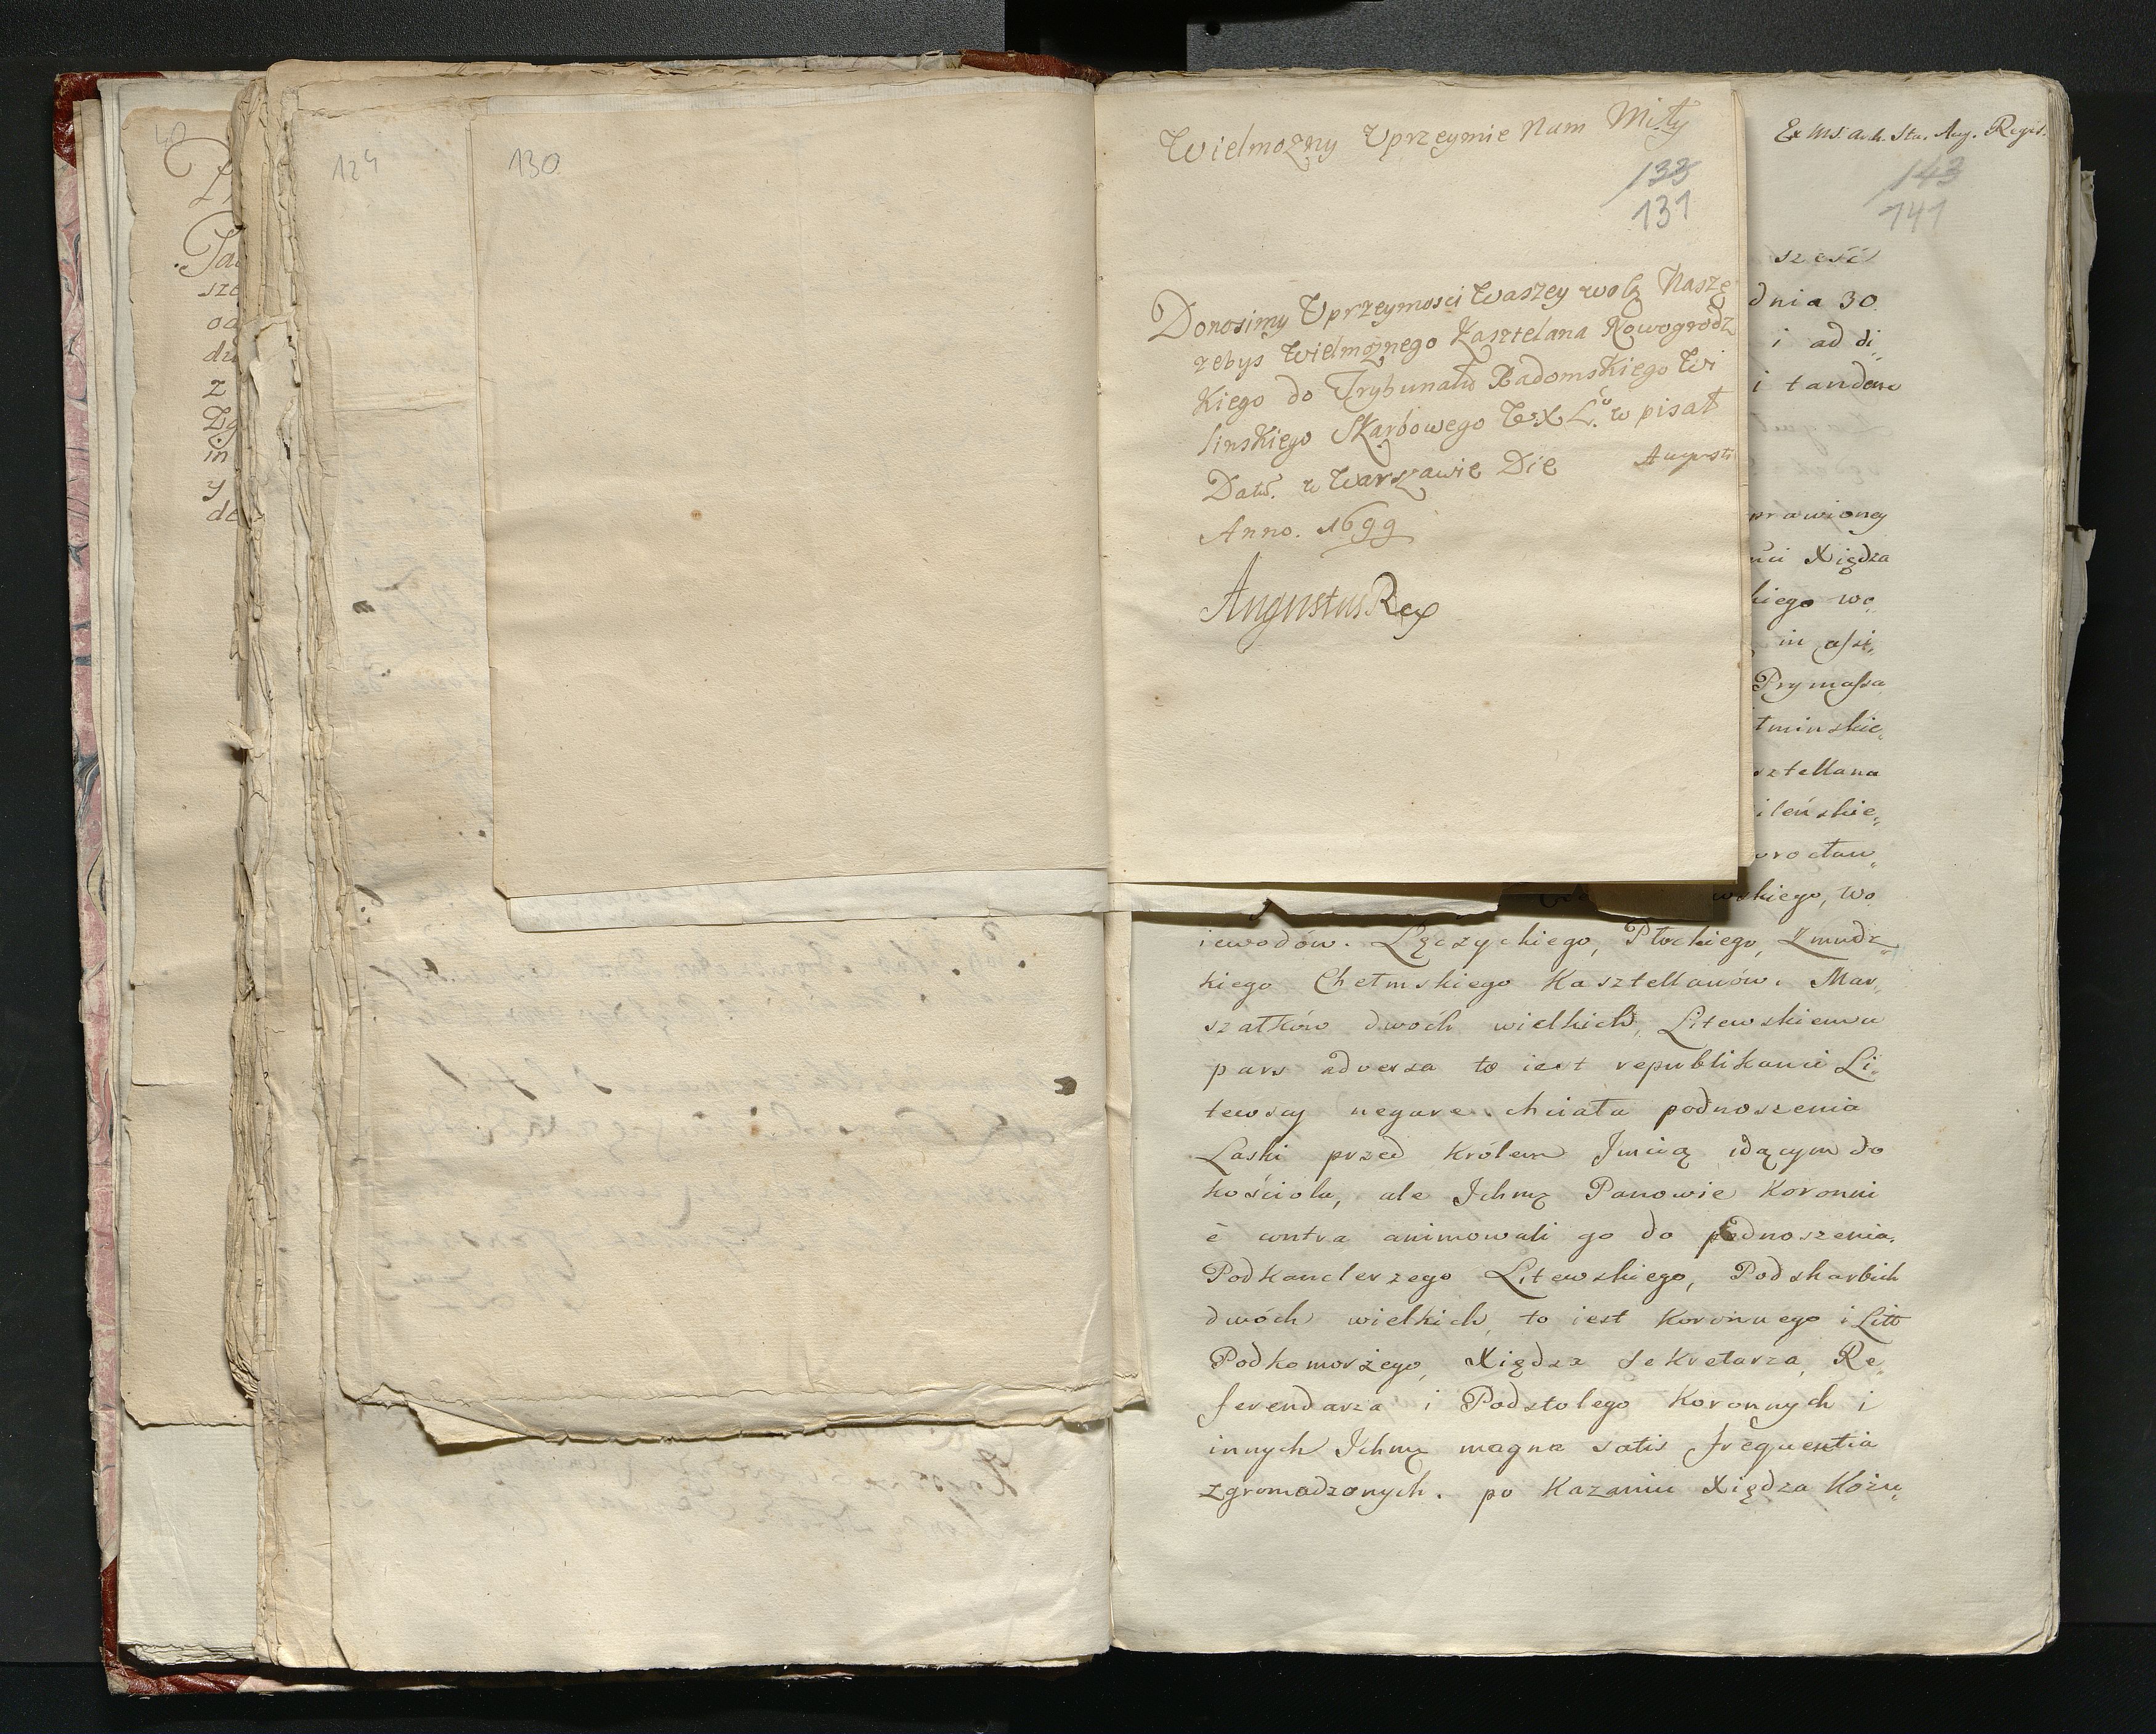 40
sze
od
z
in
y
de
124
130
Wielmozny Uprzeymie Nam Miły
133
131
Donosimy Uprzeymosci Waszey wolą Naszę
zebys Wielmoznego Kasztelana Nowogrodz
Kiego do Trybunału Radomskiego Wi
linskiego Skarbowego W. X. L. wpisał
Datt. w Warszawie Die Augusti
Anno. 1699
Augustus Rex
Ex MS. Arch. Sta. Aug. Regis.
143
141
sześć
dnia 30
i ad di„
i tandem
prawioney
Xiędza
kiego wo„
in assi„
Prymassa
tminskie„
sztellana
ileńskie„
wrocław„
wskiego, Wo
iewodów. Łęczyckiego, Płockiego, Zmudz„
kiego Chełmskiego Kasztellanów. Mar„
szałków dwóch wielkich, Litewskiemu
pars adversa to iest republikanci Li„
tewscy negare chciała podnoszenia
Laski przed Królem Jmcią idącym do
kościoła, ale Ichmę Panowie Koronni
è contra animowali go do podnoszenia.
Podkanclerzego Litewskiego, Podskarbich
dwóch wielkich, to iest Koronnego i Litt
Podkomorżego, Xiędza Sekretarza, Re„
ferendarza i Podstolego Koronnych i
innych Ichmę magna satis frequentia
zgromadzonych. po Kazaniu Xiędza Kożu„